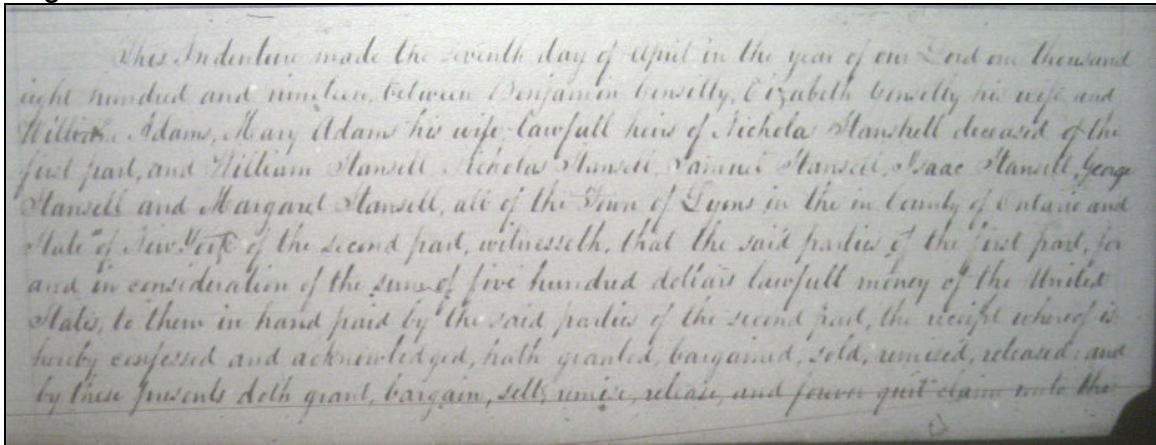 This Indenture made the seventh day of April in the year of our Lord one thousand
eight hundred and nineteen, between Benjamin Gonselly, Elizabeth Gonselly his wife, and
William Adams, Mary Adams his wife lawfull heirs of Nichola Stanshell deceased of the
first part, and William Stansell Nicholas Stansell, Samuel Stansell, Isaac Stansell, George
Stansell and Margaret Stansell, all of the Town of Lyons in the in County of Ontario and
State of New York of the second part, witnesseth, that the said parties of the first part, for
and in consideration of the sum of five hundred dollars lawfull money of the United
States, to them in hand paid by the said parties of the second part, the receipt whereof is
hereby confessed and acknowledged, hath granted, bargained, sold, remised, released, and
by these presents doth grant, bargain, sell, remise, release, and forever quit claim unto the